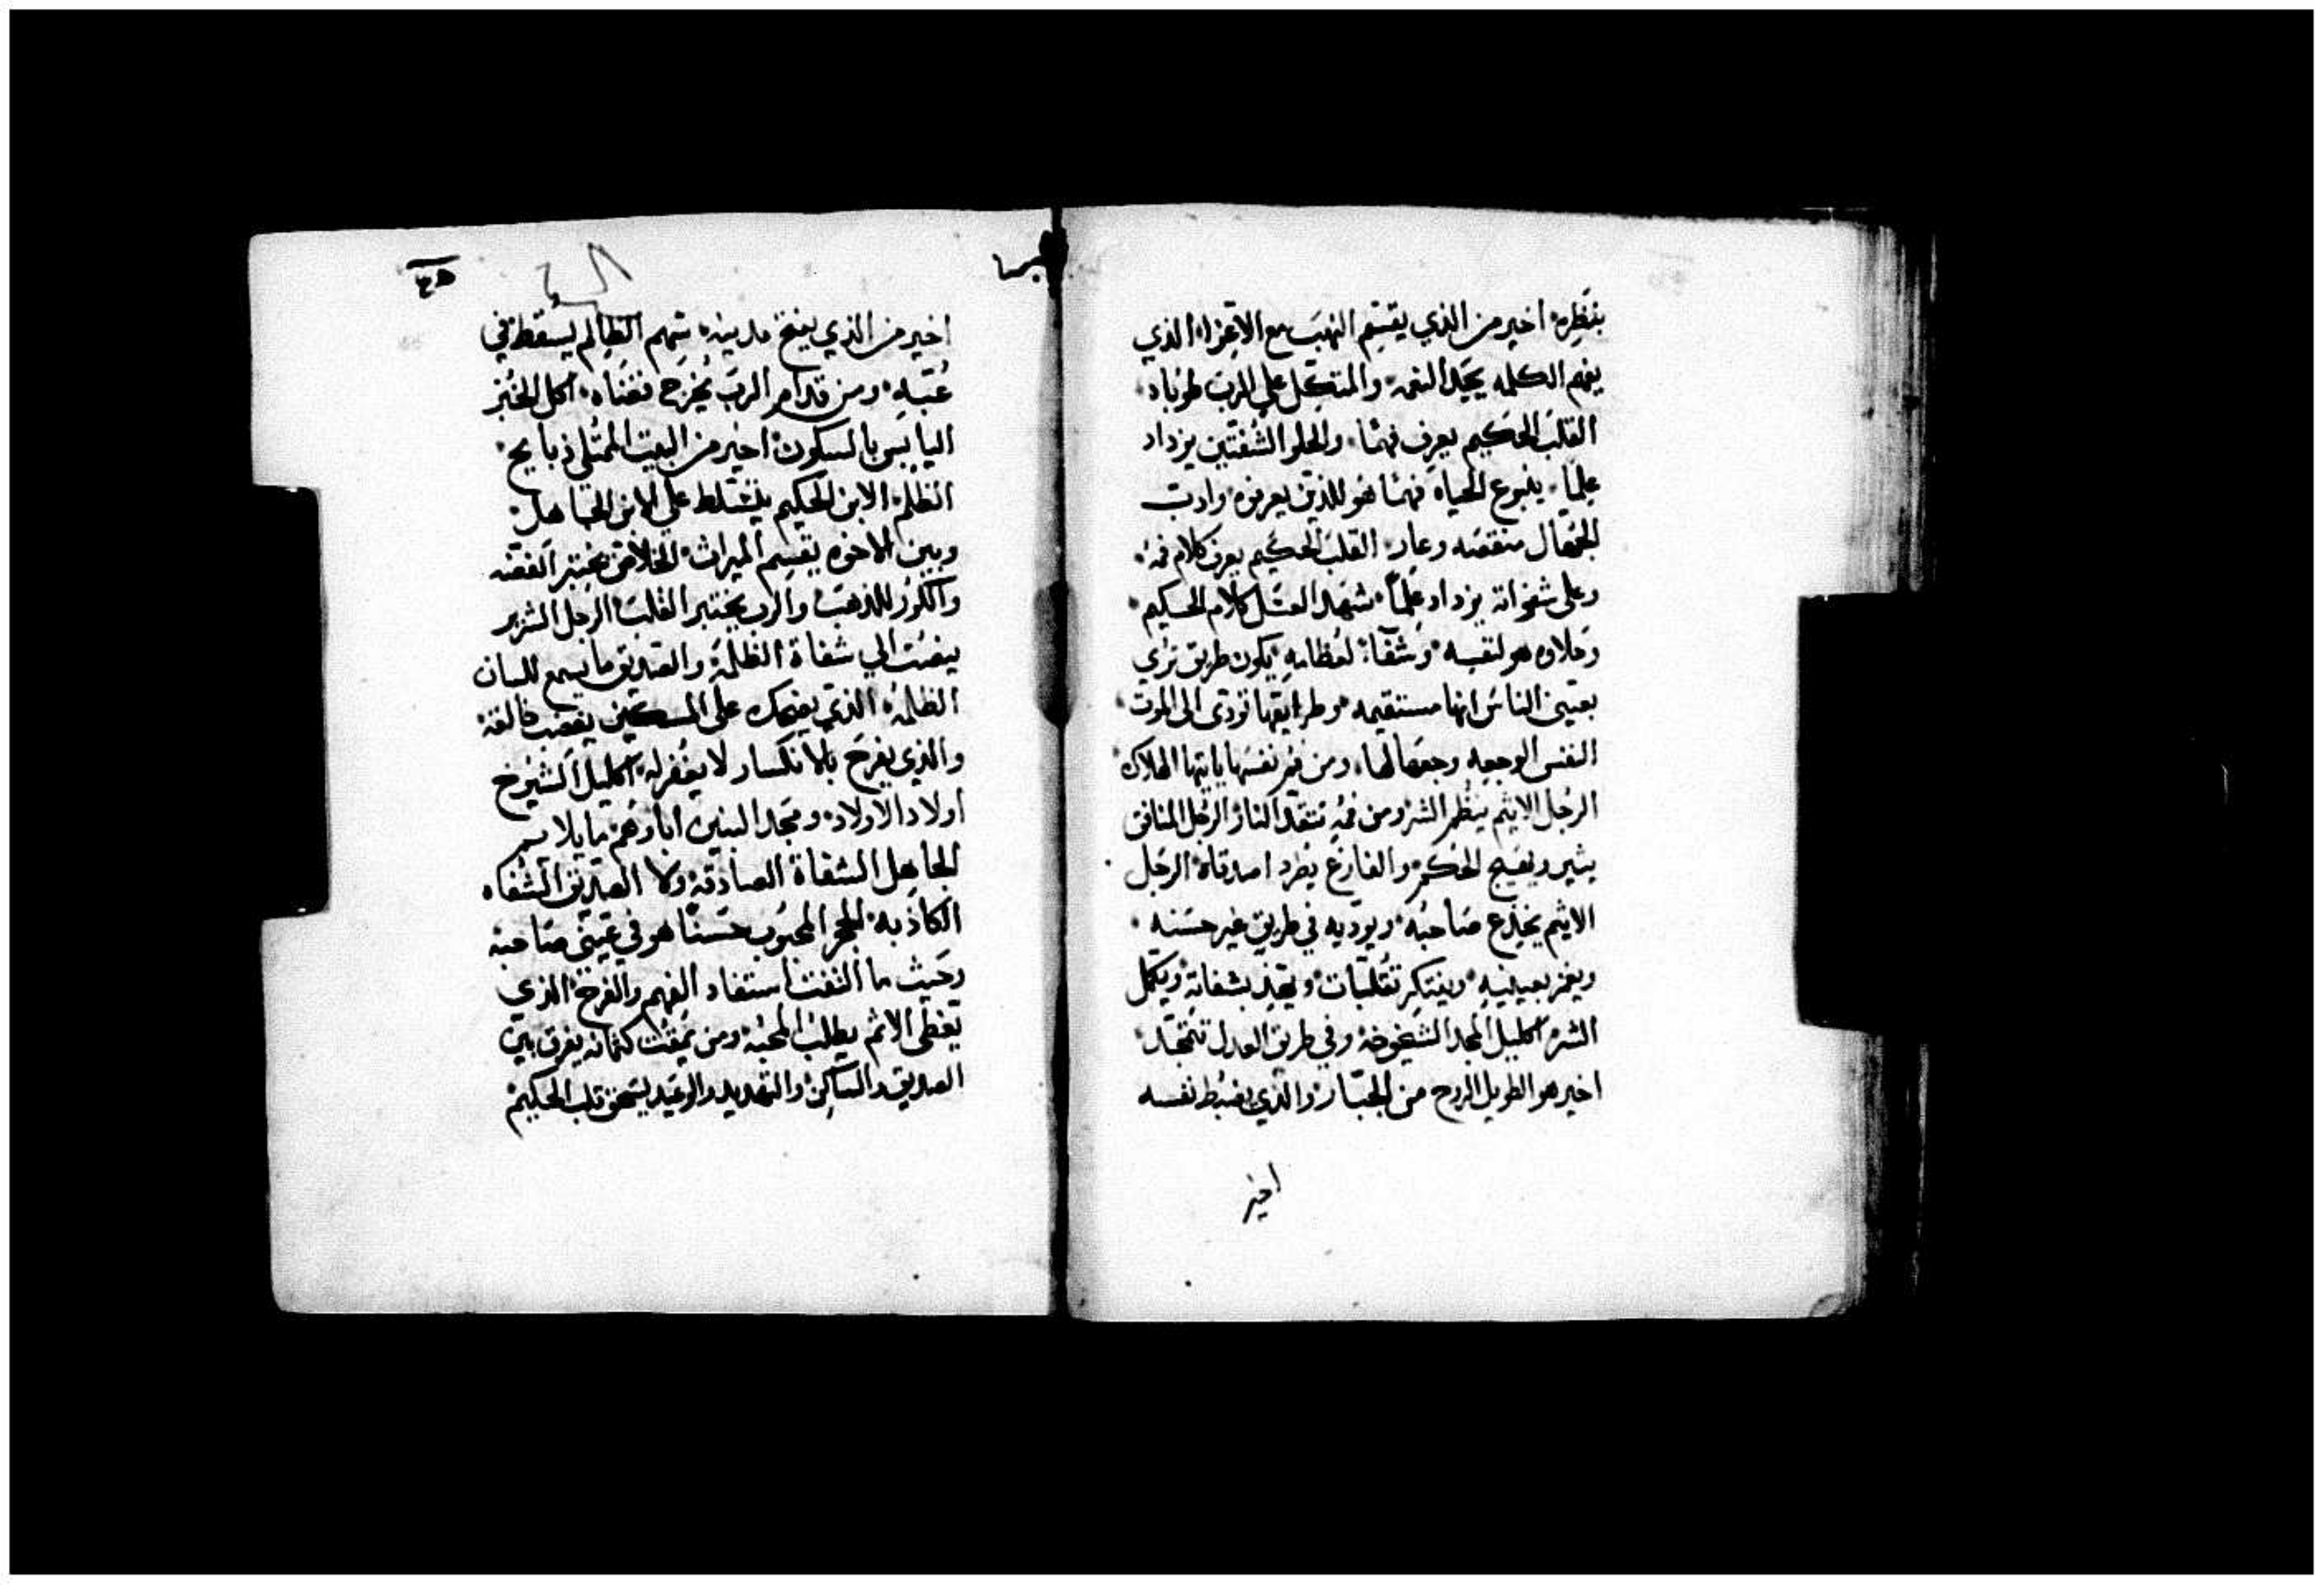 بنظره اخير من الذي يقسم النهب مع الاعزاء الذي
يفهم الكلمه يجد النعمه والمتكل علي الرب طوباه
القلب الحكيم يعرف فهما والحلو الشفتين يزداد
علما ينبوع الحياه فهما هو للذين يعرفوه وادب
الجهال منقصه وعار القلب الحكيم يعرف كلام فمه
وعلى شفواته يزداد علما شهد العسل كلام الحكيم
وحلاوه هو لنفسه وشفاء لعظامه يكون طريق تري
بعيني الناس انها مستقيمه وطرايقها تودى الى الموت
النفس الوجعه وجعها لها ومن فم نفسها ياتيها الهلاك
الرجل الاثيم ينظر الشر ومن فمه تتقد النار الرجل المنافق
يثير ويهيج الحكم والفارغ يطرد اصدقاه الرجل
الاثيم يخدع صاحبه ويوديه في طريق غير حسنه
ويغمز بعينيه ويفتكر تقلبات بشفاته ويكمل
الشر اكليل المجد الشيخوخه وفي طريق العدل تتمجد
اخير هو الطويل الروح من الجبار والذي يضبط نفسه
اخير
اخير من الذي يفتح مدينه سهم الظالم ليسقط في
عبه ومن قدام الرب يخرج قضاه اكل الخبز
اليابس بالسكون اخير من البيت الممتلي ذبايح
الظلم الابن الحكيم يتسلط علي الابن الجاهل
وبين الاخوه يقسم الميراث الخلاص يختبر الفضه
والكور للذهب والرب يختبر القلب الرجل الشرير
ينصت الي شفاة الظلمه والصديق ما يسمع للسان
الظلمه الذي يضحك على المسكين يغضب خالقه
والذي يفرح بالانكسار لا يغفر له اكليل الشيوخ
اولاد الاولاد ومجد البنين اباوهم ما يلايم
الجاهل الشفاة الصادقه ولا الصديق الشفاه
الكاذبه الحجر المحبوب حسنا هو في عيني صاحبه
وحيث ما التفت استفاد الفهم والفرح الذي
تغطى الاثم يطلب المحبه ومن يمقت كتمانه يفرق بين
الصديق والساكن والتهديد والوعيد يسحق قلب الحكيم